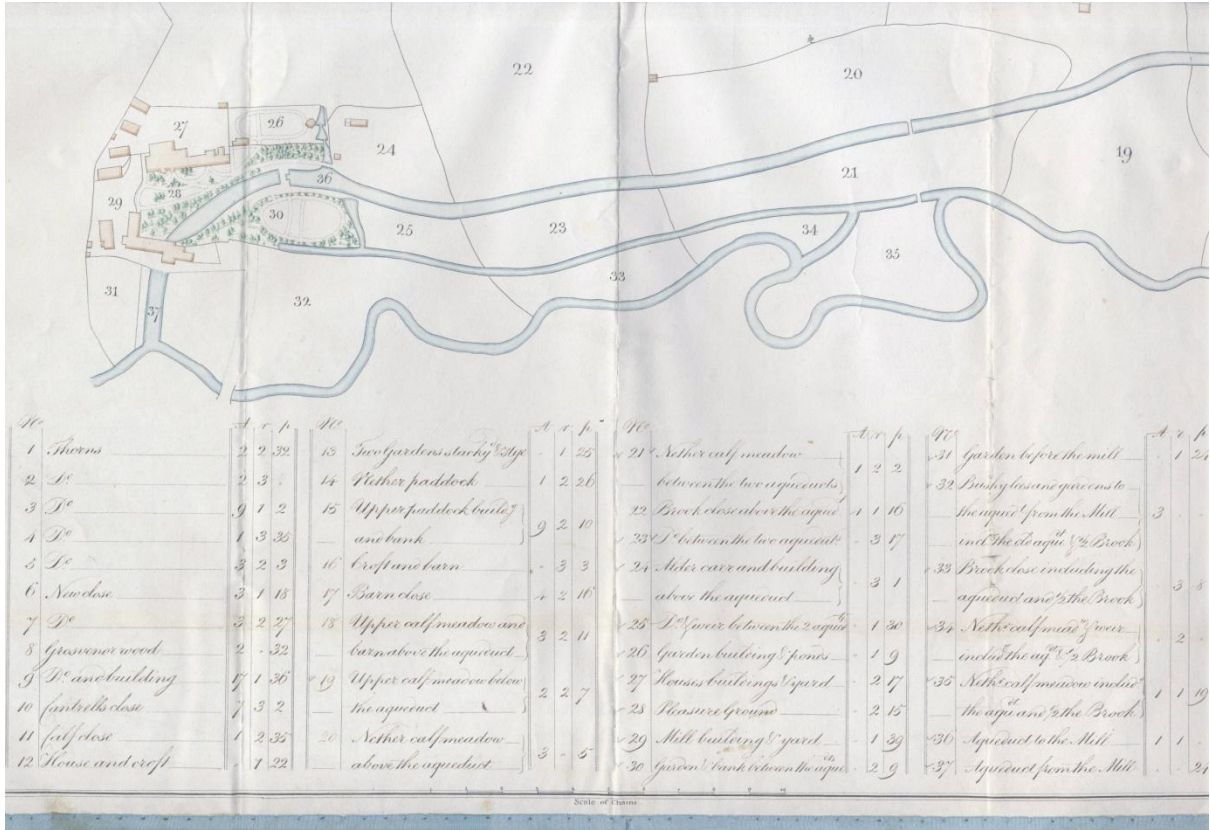 22
20
27
26
24
19
36
21
28
29
30
25
23
34
35
33
31
32
37
No A r p
1 Thorns 2 2 32
2 Do 2 3 .
3 Do 9 1 2
4 Do 1 3 35
5 Do 3 2 3
6 New close 3 1 18
7 Do 3 2 27
8 Grosvenor wood 2 . 32
9 Do and building 17 1 36
10 Cantrells close 7 3 2
11 Calf close 1 2 35
12 House and croft . 1 22
No A r p
13 Two Gardens stacky & Stye . 1 25
14 Nether paddock 1 2 26
15 Upper paddock buildg
and bank 9 2 10
16 Croft and barn . 3 3
17 Barn close 4 2 16
18 Upper calf meadow and
barn above the aqueduct 3 2 11
19 Upper calf meadow below
the aqueduct 2 2 7
20 Nether calf meadow
above the aqueduct 3 . 5
No A r p
21 Nether calf meadow
between the two aqueducts 1 2 2
22 Brook close above the aquet 4 1 16
23 Do between the two aqueducts . 3 17
24 Alder carr and building
above the aqueduct . 3 1
25 Do & weir between the 2 aquets . 1 30
26 Garden building & ponds . 1 9
27 Houses buildings & yard . 2 17
28 Pleasure Ground . 2 15
29 Mill building & yard . 1 39
30 Garden & bank between the aquets . 2 9
No A r p
31 Garden before the mill . 1 24
32 Bushy lees and gardens to
the aquet from the Mill
indg the do aquet & 1/2 Brook 3 . .
33 Brook close including the
aqueduct and 1/2 the Brook . 3 8
34 Nethr calf meadw & weir
includg the aqt & 1/2 Brook . 2 .
35 Nethr calf meadow includg
the aqut and 1/2 the Brook 1 1 19
36 Aqueduct to the Mill 1 1 .
37 Aqueduct from the Mill . . 21
Scale of Chains